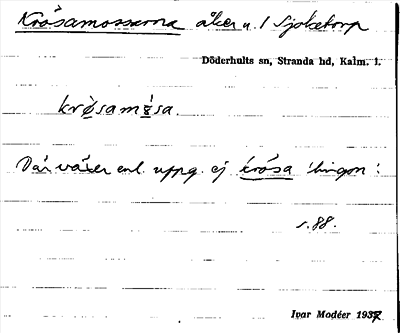 Krösamossarna åker u. 1 Sjökstorp
Döderhults sn, Stranda hd, Kalm. l.
krø̀samɷ́sa.
Där växer enl. uppg. ej krösa 'lingon':
s. 88.
Ivar Modéer 1937.